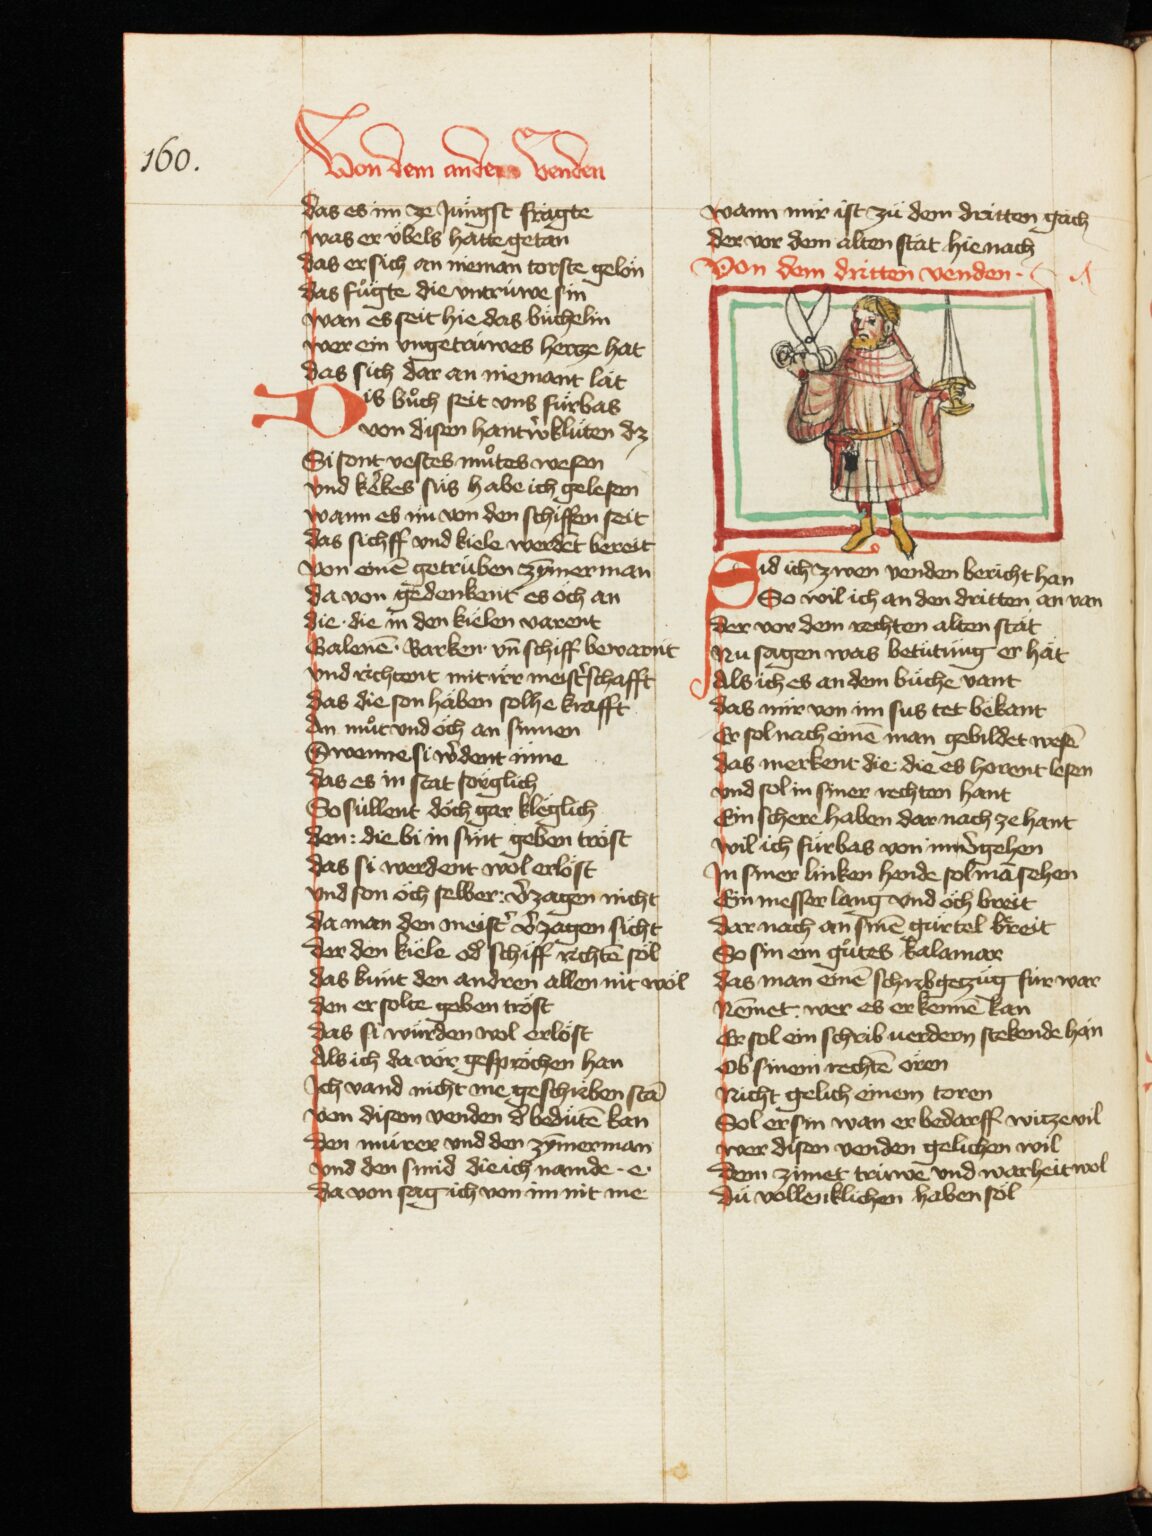 160.
Von dem andern Venden
das es im ze Jungst fragte
was er vbels hatte getan
das er sich an nieman torste gelon
das fuͦgte die vntruwe sin
wan es seit hie das buchelin
wer ein vngetruwes hercze hat
das sich dar an niemant lat
Dis buͦch seit vns furbas
von disen hantw̄kluten dz
Si sont vestes muͦtes wesen
vnd kekes sus habe ich gelesen
wann es im von den schiffen seit
das sichff vnd kiele werdēt bereit
von einē getruben zȳmerman
da von gedenkent es och an
die · die in den kielen varent
Galenē · Barken · vn̄ schiff bewarnt
vnd richtent mit irr meist'schafft
das die son haben solhe krafft
An muͦt vnd och an sinnen
Swenne si w'dent inne
das es in stat sorglich
So sullent doch gar kleglich
den : die bi in sint geben trost
das si werdent wol erlost
vnd son och selber : v'zagen nicht
da man den meist' v'zagen sicht
der den kiele od' schiff richtē sol
das kunt den andren allen nit wol
den er solte geben trost
das si wurden wol erlost
Als ich da vor gesprochen han
Ich vand nicht me geschriben stā
von disem venden d' bedutē kan
den murer vnd den zȳmerman
vnd den smid die ich namde · e ·
da von sag ich von im nit me
wann mir ist zu dem dritten gach
der vor dem alten stat hie nach
Von dem dritten venden ·
Sid ich zwen venden bericht han
So wil ich an den dritten an van
der vor dem rechten alten stat
Nu sagen was betutung er hat
Als ich es an dem buche vant
das mir von im sus tet bekant
Er sol nach einē man gebildet wesē
das merkent die · die es horent lesen
vnd sol in siner rechten hant
Ein schere haben dar nach ze hant
wil ich furbas von im v'gehen
In siner linken hende sol mā sehen
Ein messer lang vnd och breit
dar nach an sinē gurtel breit
So sin ein guͦtes kalamar
das man einē schribgeczug fur war
Nēmet · wer es erkennē kan
Er sol ein schrib uerdern stekende han
Ob sinem rechtē oren
Nicht gelich einem toren
Sol er sin wan er bedarff witze vil
wer disen venden gelichen wil
dem zimet truwē vnd warheit wol
du vollenklichen haben sol